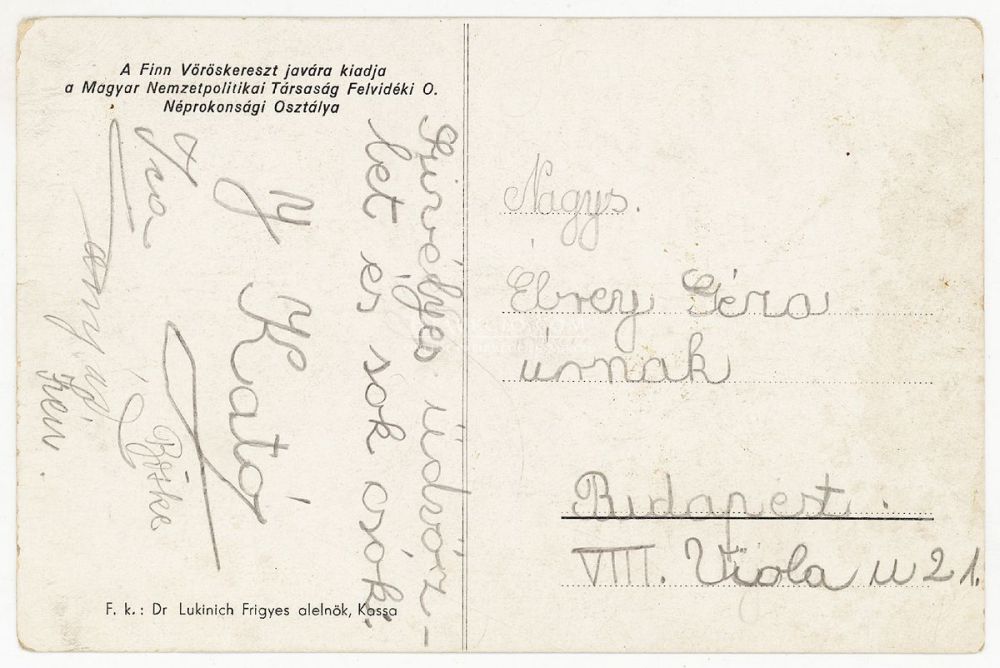 A Finn Vöröskereszt javára kiadja
a Magyar Nemzetpolitikai Társaság Felvidéki O.
Néprokonsági Osztálya
Szivélyes üdvöz-
let és sok csók.
Y Kató
Ica
Böske
anyádi
F. k.: Dr Lukinich Frigyes alelnök, Kassa
Nagys.
Ébrey Géza
úrnak
Budapest.
VIII. Viola u 21.